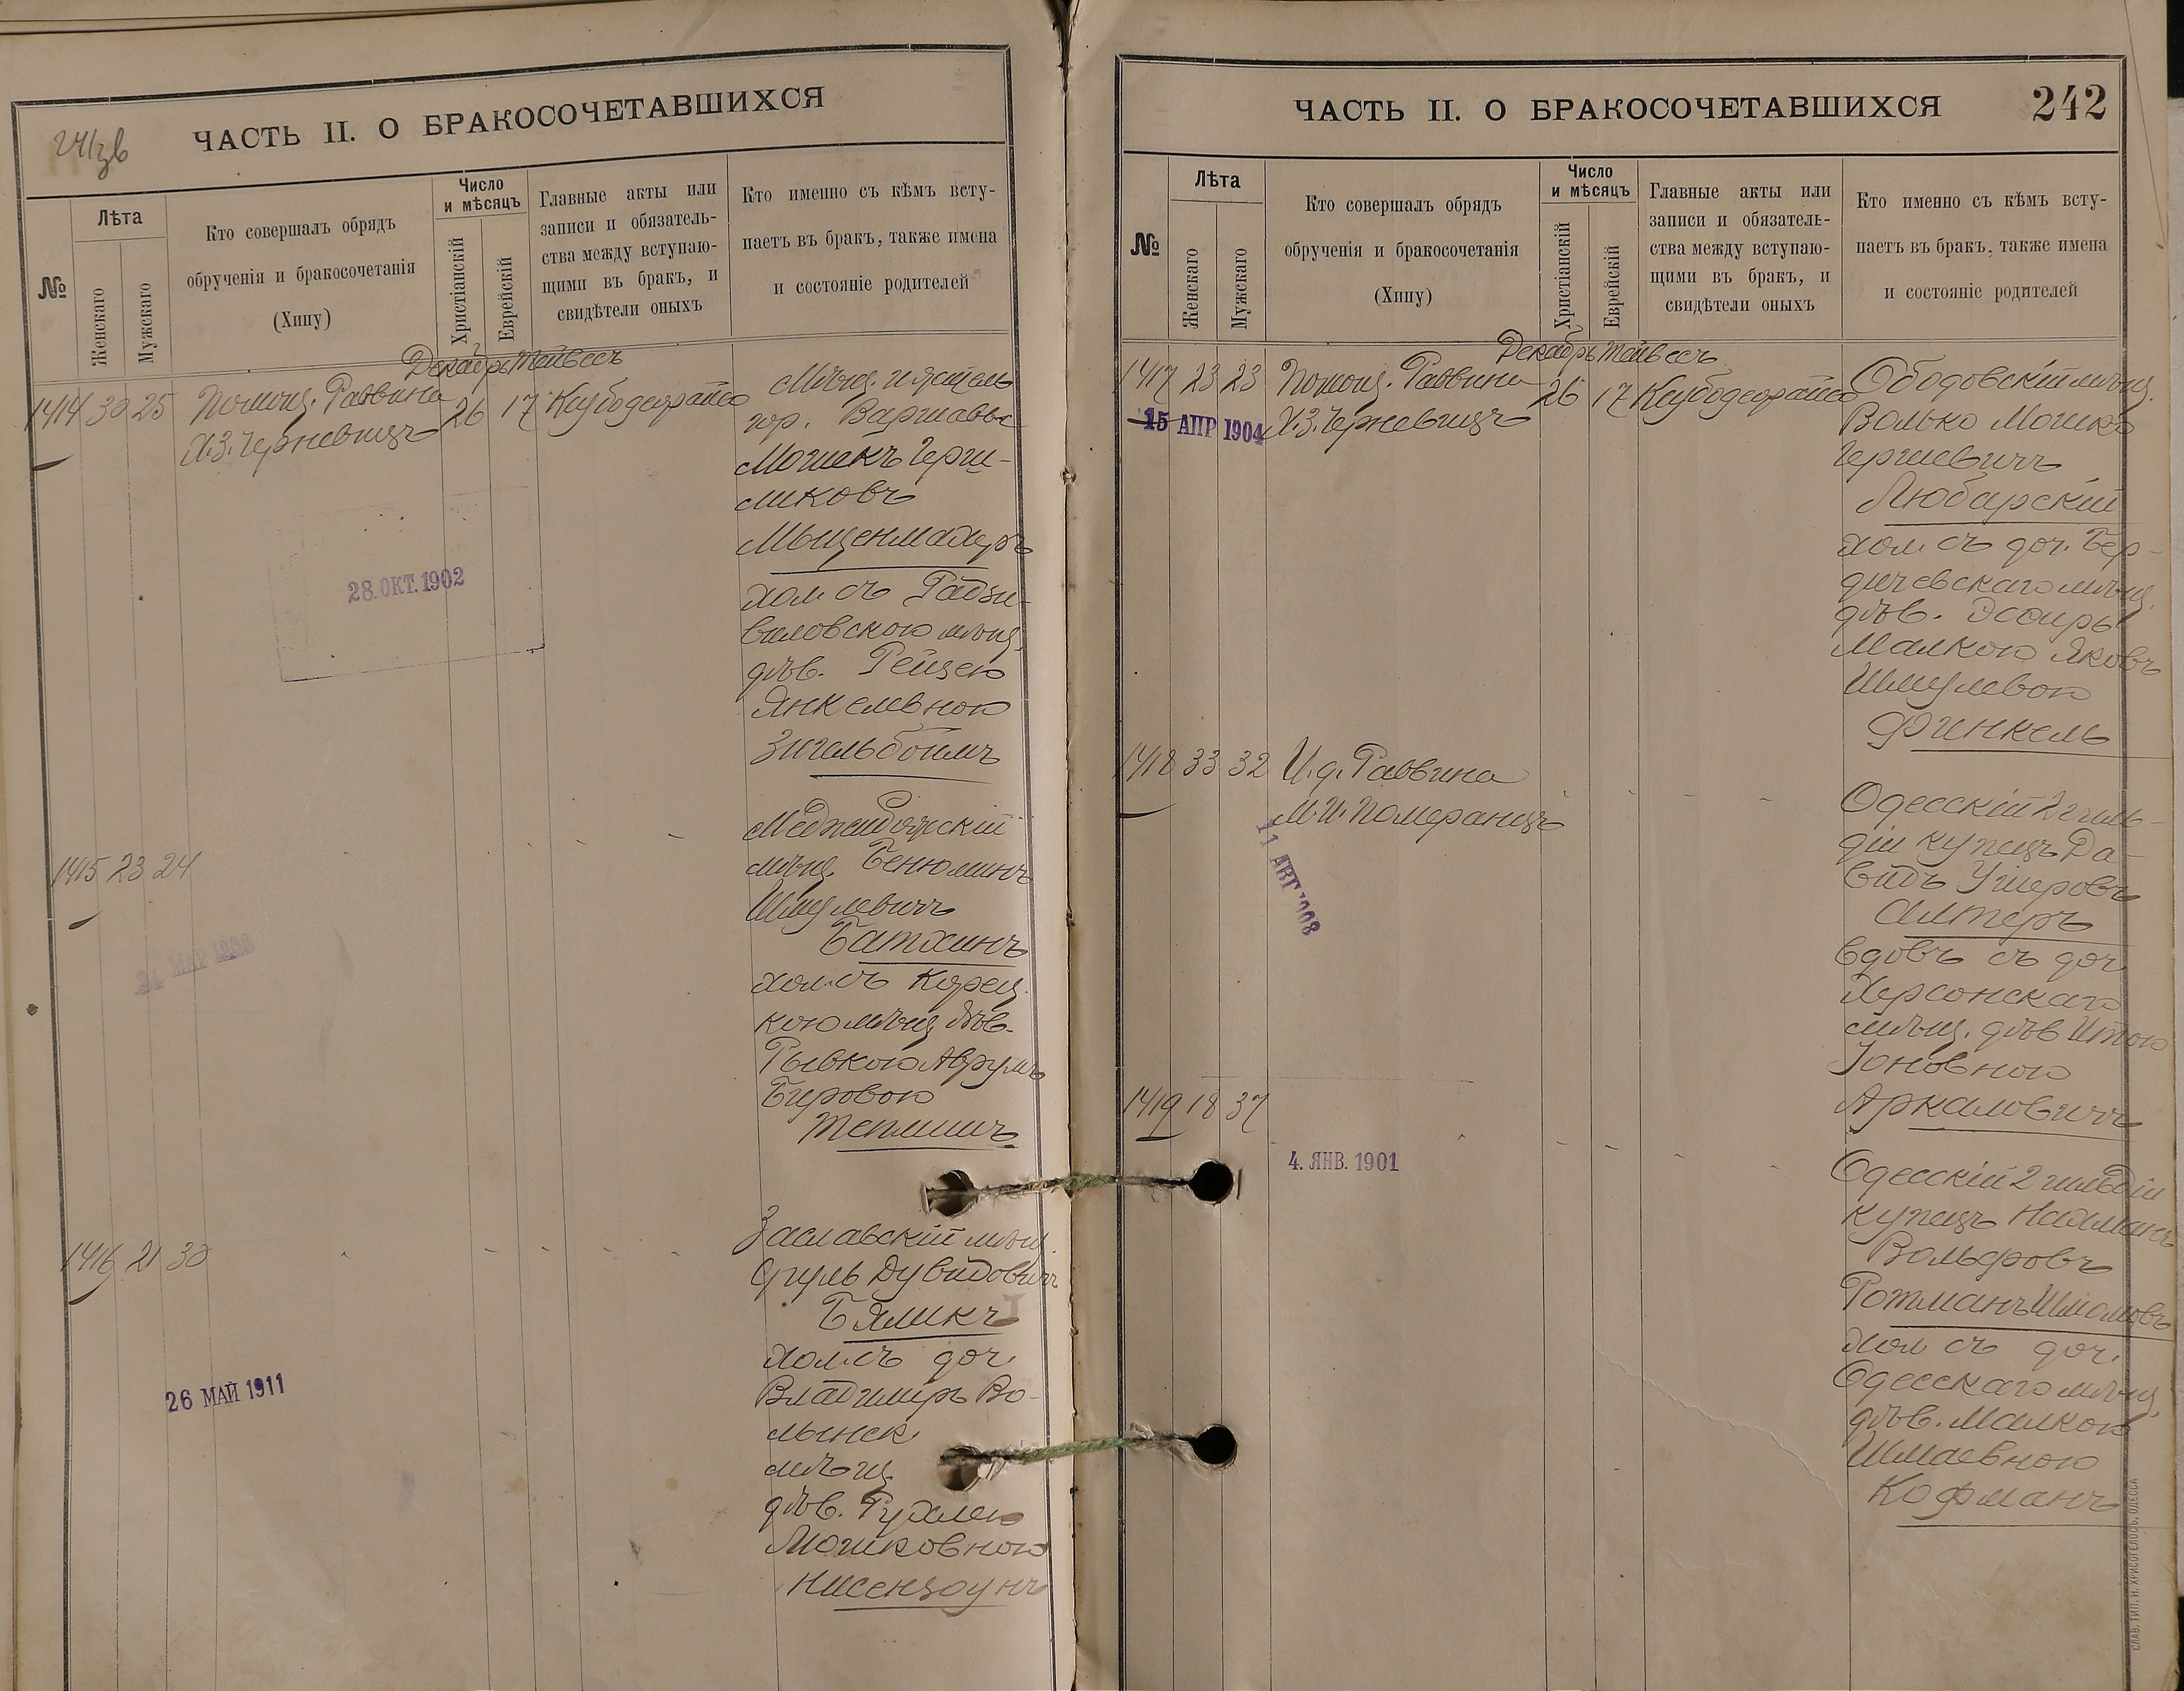 241зв
ЧАСТЬ II. О БРАКОСОЧЕТАВШИХСЯ
№
Лѣта
Женскаго
Мужскаго
Кто совершалъ обрядъ
обрученія и бракосочетанія
(Хипу)
Число
и мѣсяцъ
Христіанскій
Еврейскій
Главные акты или
записи и обязатель-
ства между вступаю-
щими въ бракъ, и
свидѣтели оныхъ
Кто именно съ кѣмъ всту-
паетъ въ бракъ, также имена
и состояніе родителей
Декабрь Тейвесъ
1414 30 25 Помощ. Раввина 26 17
Х.З. Черневицъ
гор. Варшавы
Мошекъ Герш-
ликовъ
хол. съ Радзи-
виловскою мѣщ.
дѣв. Рейзею
Янкелевною
Зигельбоимъ
28. ОКТ. 1902
1415 23 24
Меджибожскій
мѣщ. Бенюминъ
Шмулевичъ
Батхинъ
хол. съ Корец.
кою мѣщ. дѣв.
Рывкою Аврумъ
Беровою
Теплицъ
1416 21 30
Заславскій мѣщ.
Сруль Дувидовичъ
Бяликъ
хол. съ доч.
Владимиръ Во-
лынск.
мѣщ.
дѣв. Рухлею
Мошковною
Нисенцоунъ
26 МАЙ 1911
ЧАСТЬ II. О БРАКОСОЧЕТАВШИХСЯ
242
№
Лѣта
Женскаго
Мужскаго
Кто совершалъ обрядъ
обрученія и бракосочетанія
(Хипу)
Число
и мѣсяцъ
Христіанскій
Еврейскій
Главные акты или
записи и обязатель-
ства между вступаю-
щими въ бракъ, и
свидѣтели оныхъ
Кто именно съ кѣмъ всту-
паетъ въ бракъ, также имена
и состояніе родителей
Декабрь Тейвесъ
1417 23 23 Помощ. Раввина 26 17
15 АПР 1904
Х.З. Черневицъ
Ободовскій мѣщ.
Волько Мошко
Гершевичъ
Любарскій
хол. съ доч. Бер-
дичевскаго мѣщ.
дѣв. Эсфирь
Малкою Яковъ
Шмулевою
Финкель
1418 33 32 И.д. Раввина
М.И. Померанцъ
11 АВГ 1908
Одесскій 2 гиль-
діи купецъ Да-
видъ Ушеровъ
Алтеръ
вдовъ съ доч.
Херсонскаго
мѣщ. дѣв. Итою
Іоновною
Аркаловичъ
1419 18 37
4. ЯНВ. 1901
Одесскій 2 гильдіи
купецъ Нахманъ
Вольфовъ
хол. съ доч.
Одесскаго мѣщ.
дѣв. Малкою
Шмаевною
Кофманъ
СЛАВ. ТИП. Н. ХРИСОГЕЛОСЪ, ОДЕССА